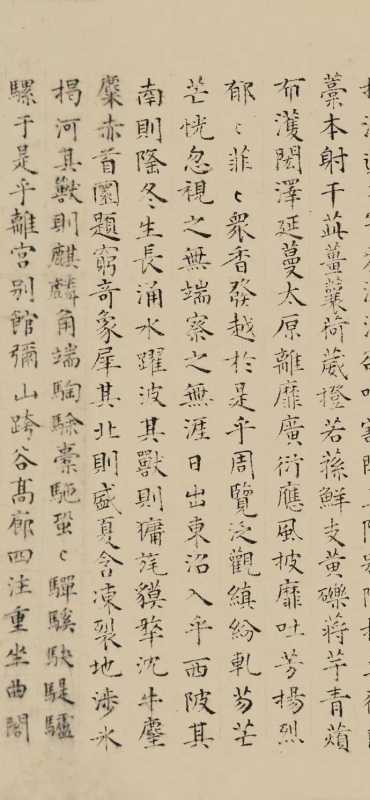 藁本射干茈薑蘘荷葴橙若蓀鮮支黃礫蔣芧青薠
布濩閎澤延蔓太原離靡廣衍應風披靡吐芳揚烈
郁〻菲〻衆香發越於是乎周覽泛觀縝紛軋芴芒
芒恍忽視之無端察之無涯日出東沼入乎西陂其
南則隆冬生長涌水躍波其獸則㺎旄貘犛沈牛麈
麋赤首圜題窮奇象犀其北則盛夏含凍裂地涉氷
揭河其獸則麒麟角端騊駼橐駞蛩〻驒騱駃騠驢
騾于是乎離宮別館彌山跨谷高廊四注重坐曲閣